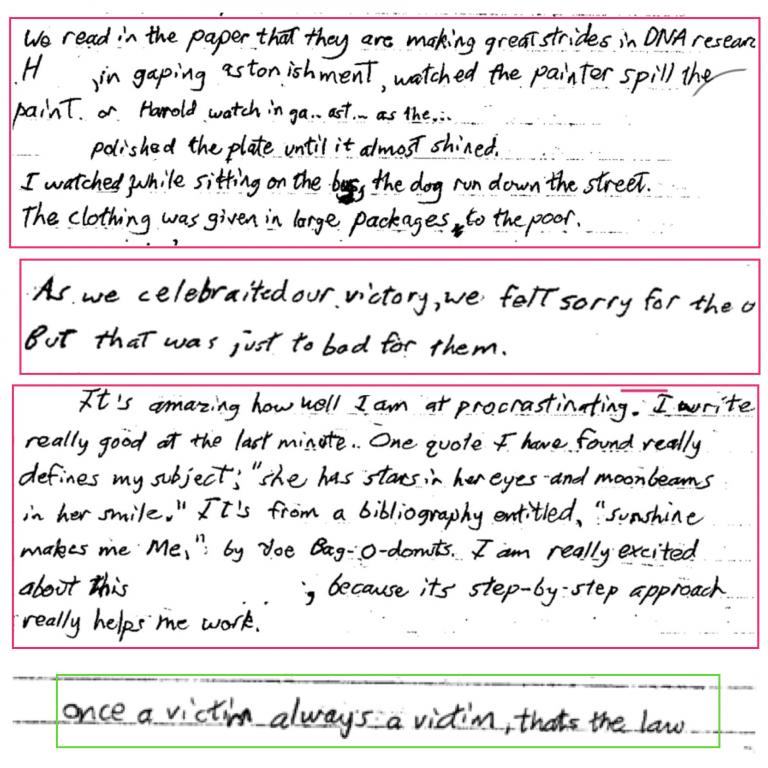 We read in the paper that they are making great strides in DNA researc
H ,in gaping astonishment, watched the painter spill the
paint. or Harrold watch in ga.. ast... as the...
polished the plate until it almost shined.
I watched, while sitting on the bus, the dog run down the street.
The clothing was given in large packages, to the poor.
As we celebraited our victory, we felt sorry for the o
But that was just to bad for them.
It's amazing how well I am at procrastinating. I write
really good at the last minute.. One quote I have found really
defines my subject; "she has stars in her eyes and moonbeams
in her smile." It's from a bibliography entitled, "sunshine
makes me Me,": by Joe Bag-O-donuts. I am really excited
about this ; because its step-by-step approach
really helps me work.
once a victim always a victim, thats the law